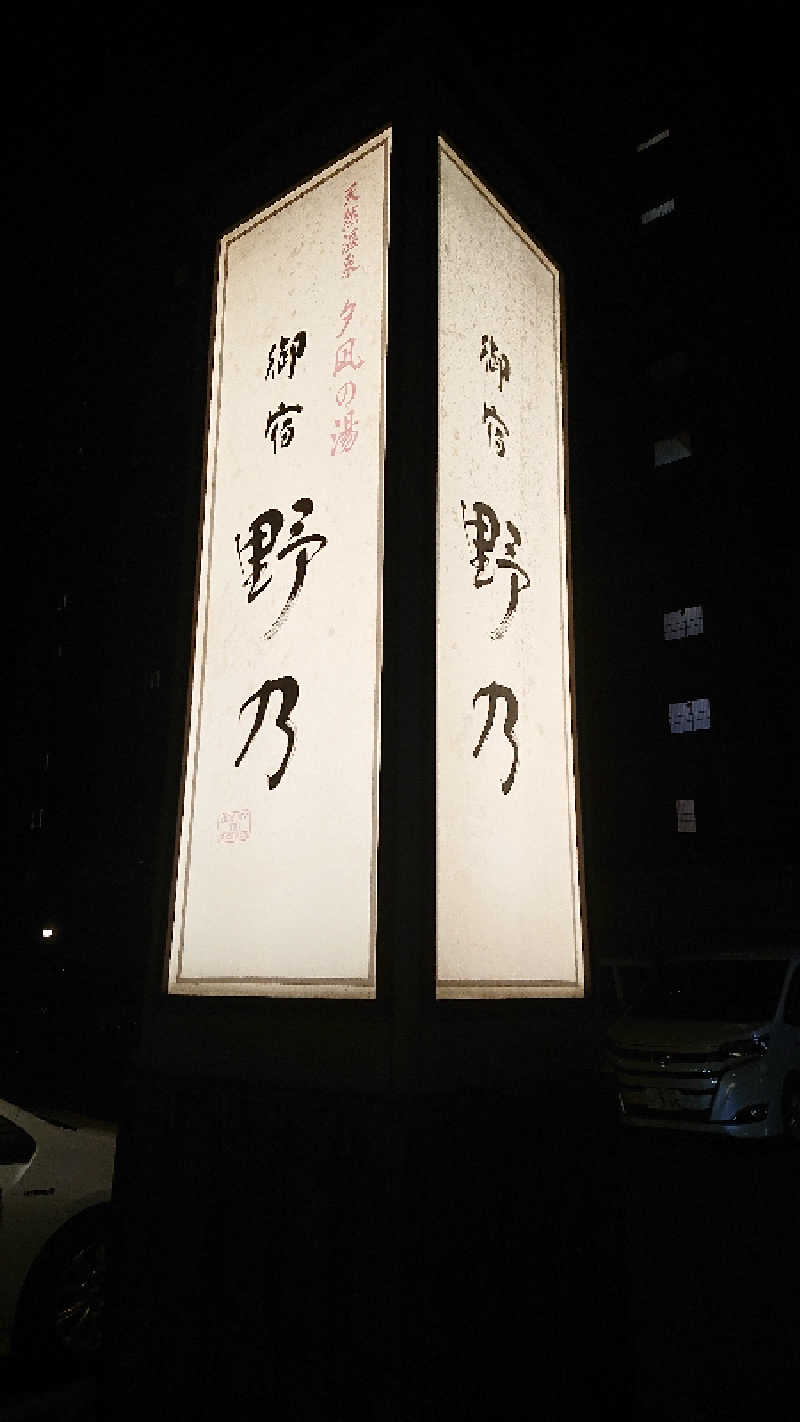 天然温泉 夕凪の湯
御宿 野乃
御宿 野乃